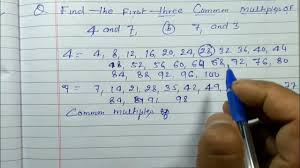 Q. Find the first three Common Multiples of
4 and 7, (b) 7, and 3
4 = 4, 8, 12, 16, 20, 24, 28, 32, 36, 40, 44
48, 52, 56, 60, 64, 68, 72, 76, 80
84, 88, 92, 96, 100
7 = 7, 14, 21, 28, 35, 42, 49, 77
84, 91 98
Common multiples of